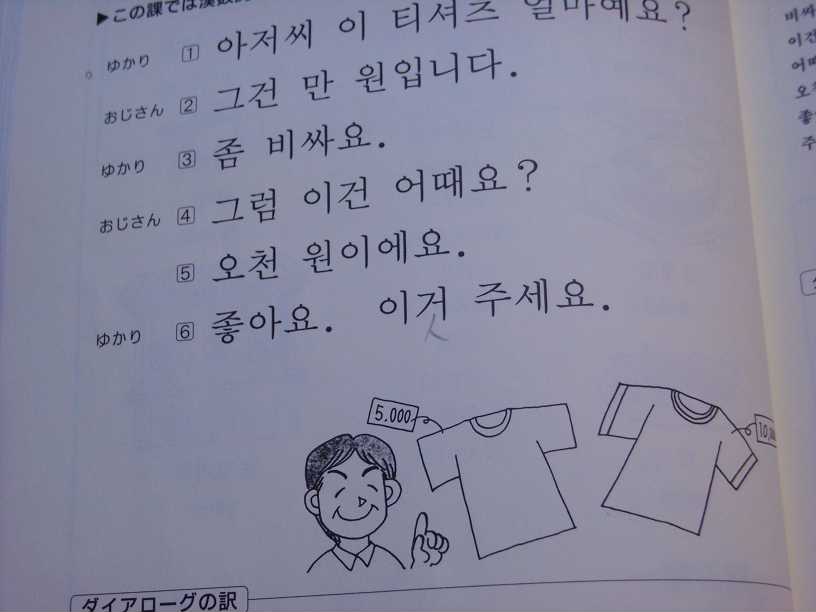 ▶この課では漢数
ゆかり 1 아저씨 이 티셔츠 얼마예요?
おじさん 2 그건 만 원입니다.
ゆかり 3 좀 비싸요.
おじさん 4 그럼 이건 어때요?
5 오천 원이에요.
ゆかり 6 좋아요. 이거 주세요.
5.000
ダイアローグの訳
비싸
이건